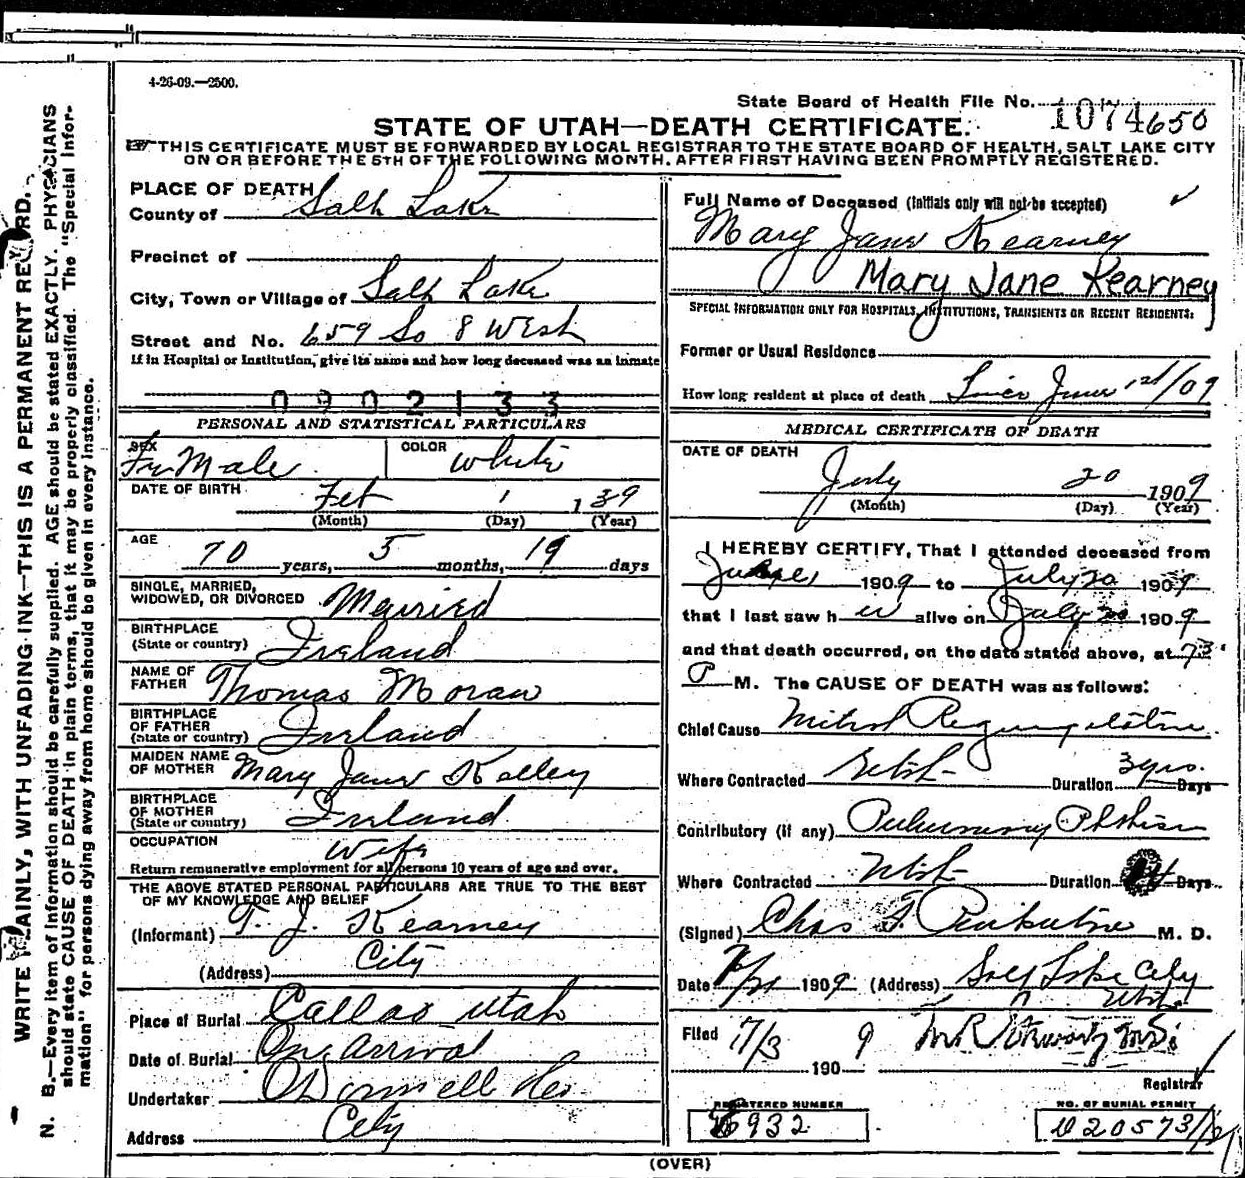 4-26-09.—2500.
State Board of Health File No. 1074 650
STATE OF UTAH—DEATH CERTIFICATE.
THIS CERTIFICATE MUST BE FORWARDED BY LOCAL REGISTRAR TO THE STATE BOARD OF HEALTH, SALT LAKE CITY
ON OR BEFORE THE 5TH OF THE FOLLOWING MONTH, AFTER FIRST HAVING BEEN PROMPTLY REGISTERED.
WRITE PLAINLY, WITH UNFADING INK—THIS IS A PERMANENT RECORD.
N. B.—Every item of information should be carefully supplied. AGE should be stated EXACTLY. PHYSICIANS
should state CAUSE OF DEATH in plain terms, that it may be properly classified. The "Special Infor-
mation" for persons dying away from home should be given in every instance.
PLACE OF DEATH
County of Salt Lake
Precinct of
City, Town or Village of Salt Lake
Street and No. 659 So 8 West
If in Hospital or Institution, give its name and how long deceased was an inmate
0902133
PERSONAL AND STATISTICAL PARTICULARS
SEX FeMale COLOR White
DATE OF BIRTH Feb 1 1839
(Month) (Day) (Year)
AGE 70 years, 5 months, 19 days
SINGLE, MARRIED,
WIDOWED, OR DIVORCED Married
BIRTHPLACE
(State or country) Ireland
NAME OF
FATHER Thomas Moran
BIRTHPLACE
OF FATHER
(State or country) Ireland
MAIDEN NAME
OF MOTHER Mary Jane Kelley
BIRTHPLACE
OF MOTHER
(State or country) Ireland
OCCUPATION Wife
Return remunerative employment for all persons 10 years of age and over.
THE ABOVE STATED PERSONAL PARTICULARS ARE TRUE TO THE BEST
OF MY KNOWLEDGE AND BELIEF
(Informant) T. J. Kearney
(Address) City
Place of Burial Callao Utah
Date of Burial On arrival
Undertaker O'Donnell
Address City
Full Name of Deceased (Initials only will not be accepted)
Mary Jane Kearney
Mary Jane Kearney
SPECIAL INFORMATION ONLY FOR HOSPITALS, INSTITUTIONS, TRANSIENTS OR RECENT RESIDENTS:
Former or Usual Residence
How long resident at place of death Since June 1st/09
MEDICAL CERTIFICATE OF DEATH
DATE OF DEATH
July 20 1909
(Month) (Day) (Year)
I HEREBY CERTIFY, That I attended deceased from
June 1909 to July 20 1909
that I last saw her alive on July 20 1909
and that death occurred, on the date stated above, at
P M. The CAUSE OF DEATH was as follows:
Chief Cause Mitral Regurgitation
Where Contracted Utah Duration 3 yrs. Days
Contributory (if any) Pulmonary Phthisis
Where Contracted Utah Duration Days
(Signed) Chas F. M. D.
Date 7/21 1909 (Address) Salt Lake City
Utah
Filed 7/3 1909
Registrar
REGISTERED NUMBER
6932
NO. OF BURIAL PERMIT
(OVER)